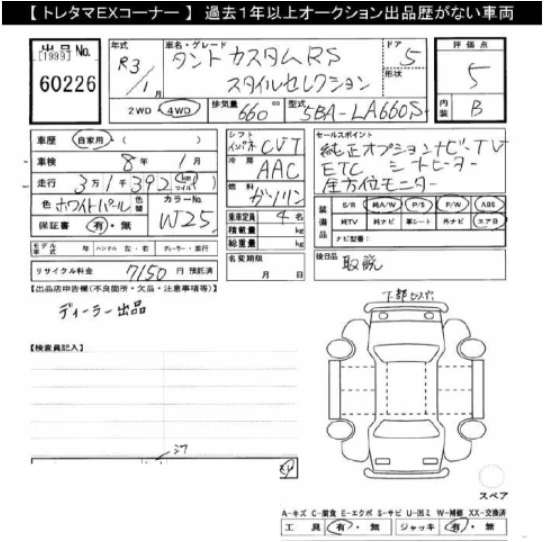 【 トレタマEXコーナー 】 過去1年以上オークション出品歴がない車両
出品 No. [1998] 60226
年式 R3/1月
車名・グレード タント カスタムRS スタイルセレクション
ドア 5
形状
評価点 5
内装 B
2WD 4WD 排気量 660 cc 型式 5BA-LA660S
車歴 自家用・( )
車検 8年 1月
走行 3万1千392 km マイル
色 ホワイトパール 色替 カラーNo. W25
保証書 有・無
モデル年式 年 ハンドル 左・右 ディーラー・並行
リサイクル料金 7150 円 預託済
シフト インパネ CVT
冷房 AAC
燃料 ガソリン
乗車定員 4 名
積載量 kg
総重量 kg
名変期限 月 日
セールスポイント
純正オプションナビ-TV
ETC シートヒーター
全方位モニター
装備品 S/R 純A/W P/S P/W ABS
純TV 純ナビ 革シート 外ナビ エアB
ナビ型番:
後日品 取説
【出品店申告欄(不良箇所・欠品・注意事項等)】
ディーラー出品
【検査員記入】
スペア
A-キズ C-腐食 E-エクボ S-サビ U-凹ミ W-補修 XX-交換済
工具 有・無 ジャッキ 有・無